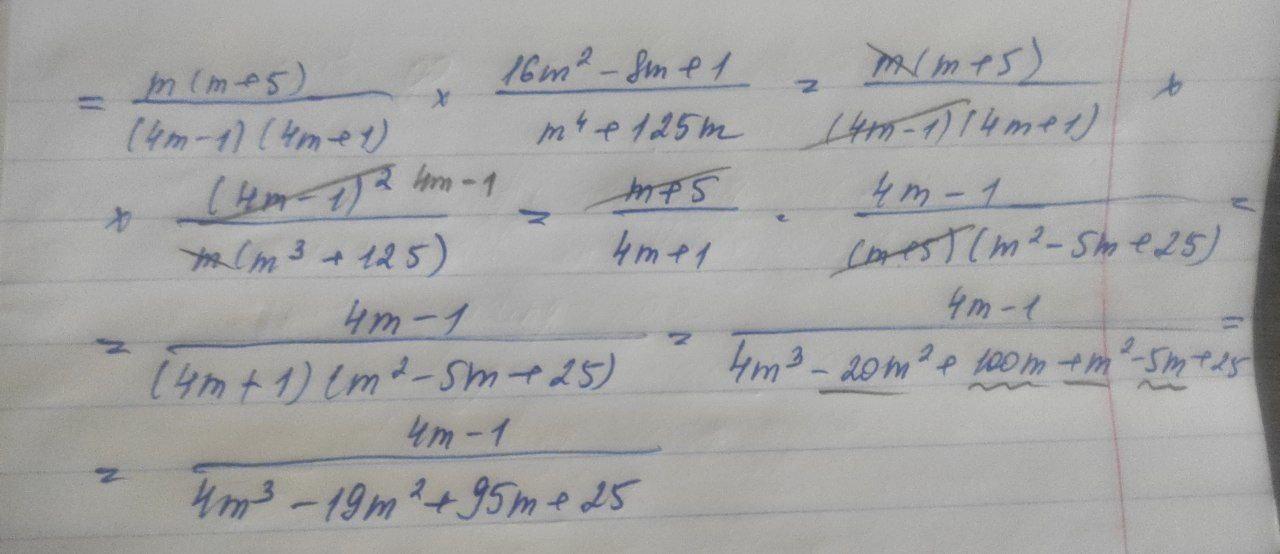 = m(m+5)/((4m-1)(4m+1)) × (16m²-8m+1)/(m⁴+125m) = m(m+5)/((4m-1)(4m+1)) ×
× (4m-1)² 4m-1/(m(m³+125)) = (m+5)/(4m+1) · (4m-1)/((m+5)(m²-5m+25)) =
= (4m-1)/((4m+1)(m²-5m+25)) = (4m-1)/(4m³-20m²+100m+m²-5m+25) =
= (4m-1)/(4m³-19m²+95m+25)